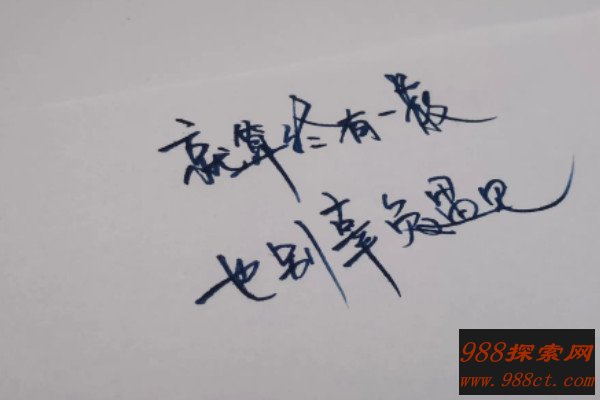 就算终有一散
也别辜负遇见
988探索网
www.988ct.com